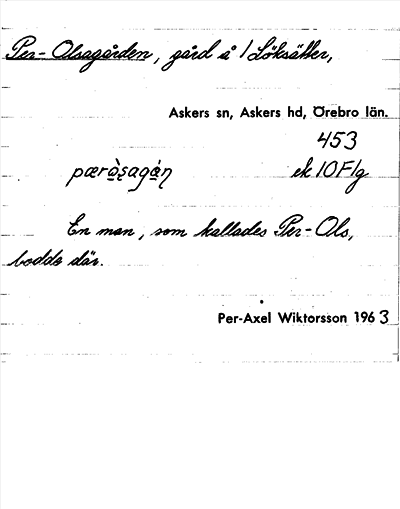 Per-Olsagården, gård å 1 Löksätter,
Askers sn, Askers hd, Örebro län.
453
pæròsagáṇ ek 10F1g
En man, som kallades Per-Ols,
bodde där.
Per-Axel Wiktorsson 1963